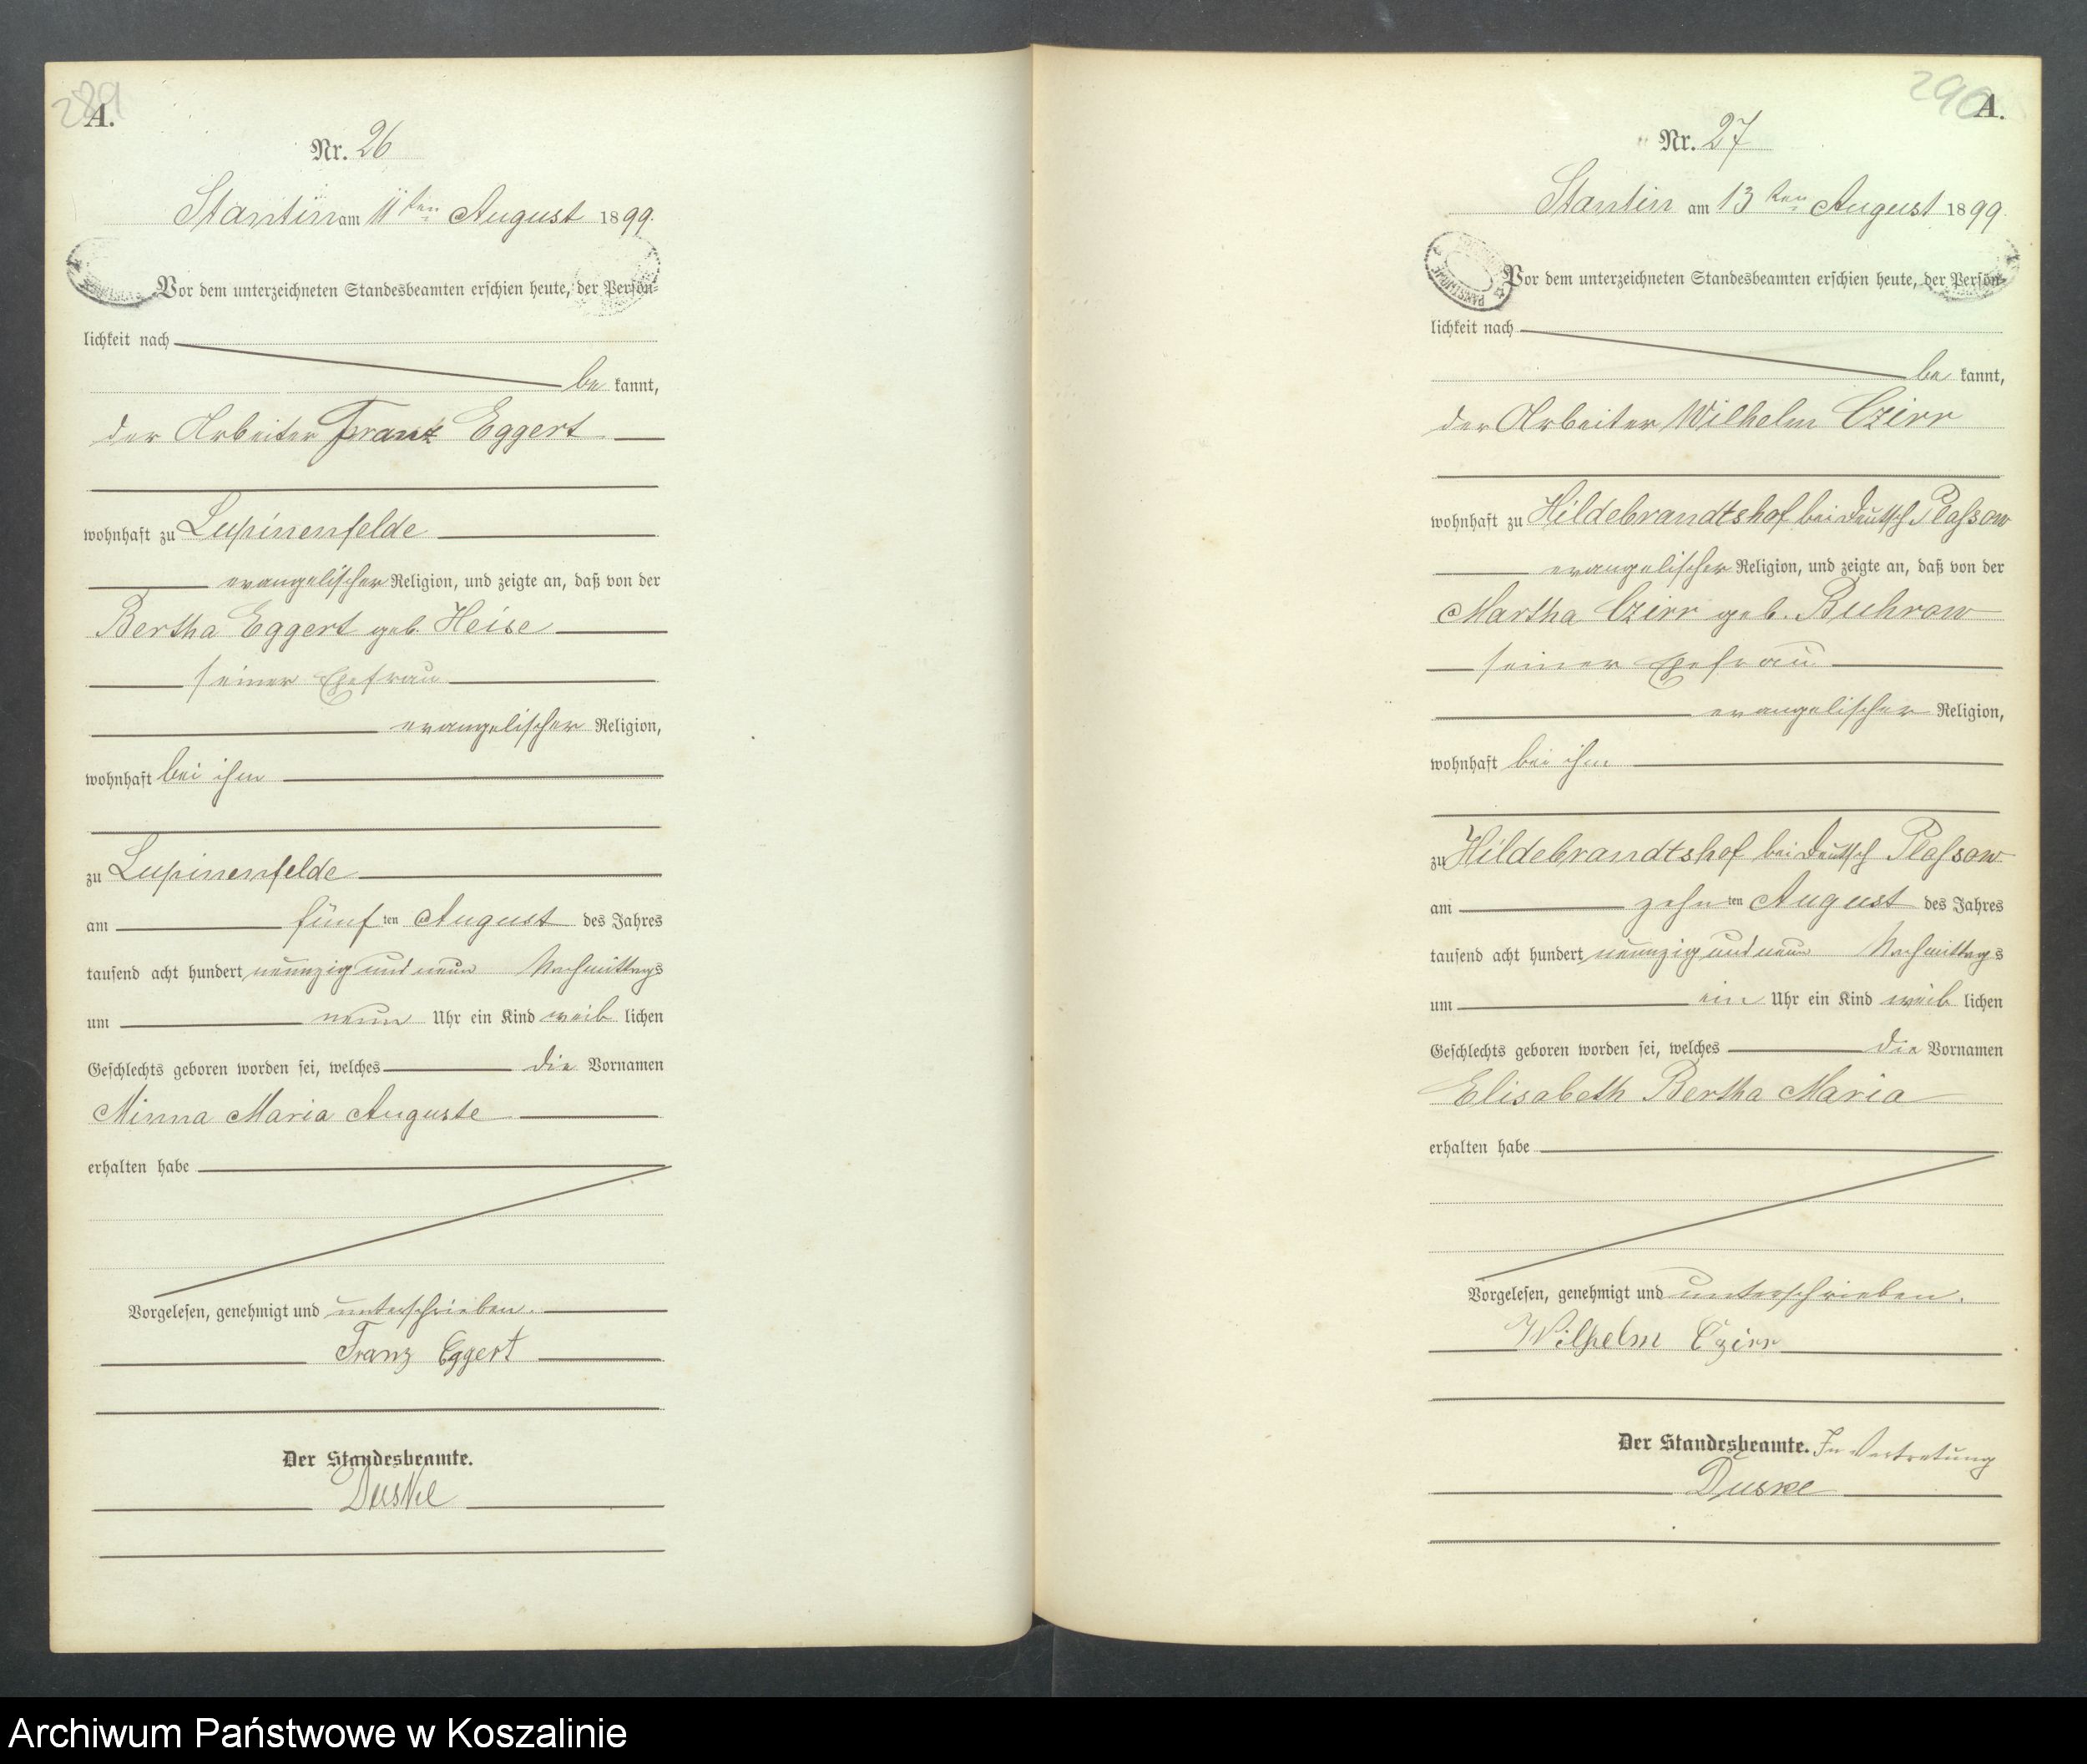 289
A.
Nr. 26
Stantin am 11ten August 1899.
Vor dem unterzeichneten Standesbeamten erschien heute, der Persön-
lichkeit nach
be kannt,
der Arbeiter Franz Eggert
wohnhaft zu Lupinenfelde
evangelischer Religion, und zeigte an, daß von der
Bertha Eggert geb. Heise
seiner Ehefrau
evangelischer Religion,
wohnhaft bei ihm
zu Lupinenfelde
am fünf ten August des Jahres
tausend acht hundert neunzig und neun Nachmittags
um neun Uhr ein Kind weib lichen
Geschlechts geboren worden sei, welches die Vornamen
Minna Maria Auguste
erhalten habe
Vorgelesen, genehmigt und unterschrieben.
Franz Eggert
Der Standesbeamte.
Duske
290
A.
Nr. 27
Stantin am 13ten August 1899.
Vor dem unterzeichneten Standesbeamten erschien heute, der Persön-
lichkeit nach
be kannt,
der Arbeiter Wilhelm Czirr
wohnhaft zu Hildebrandtshof bei Deutsch Plassow
evangelischer Religion, und zeigte an, daß von der
Martha Czirr geb. Buhrow
seiner Ehefrau
evangelischer Religion,
wohnhaft bei ihm
zu Hildebrandtshof bei Deutsch Plassow
am zehn ten August des Jahres
tausend acht hundert neunzig und neun Nachmittags
um ein Uhr ein Kind weib lichen
Geschlechts geboren worden sei, welches die Vornamen
Elisabeth Bertha Maria
erhalten habe
Vorgelesen, genehmigt und unterschrieben.
Wilhelm Czirr
Der Standesbeamte. In Vertretung
Duske
Archiwum Państwowe w Koszalinie